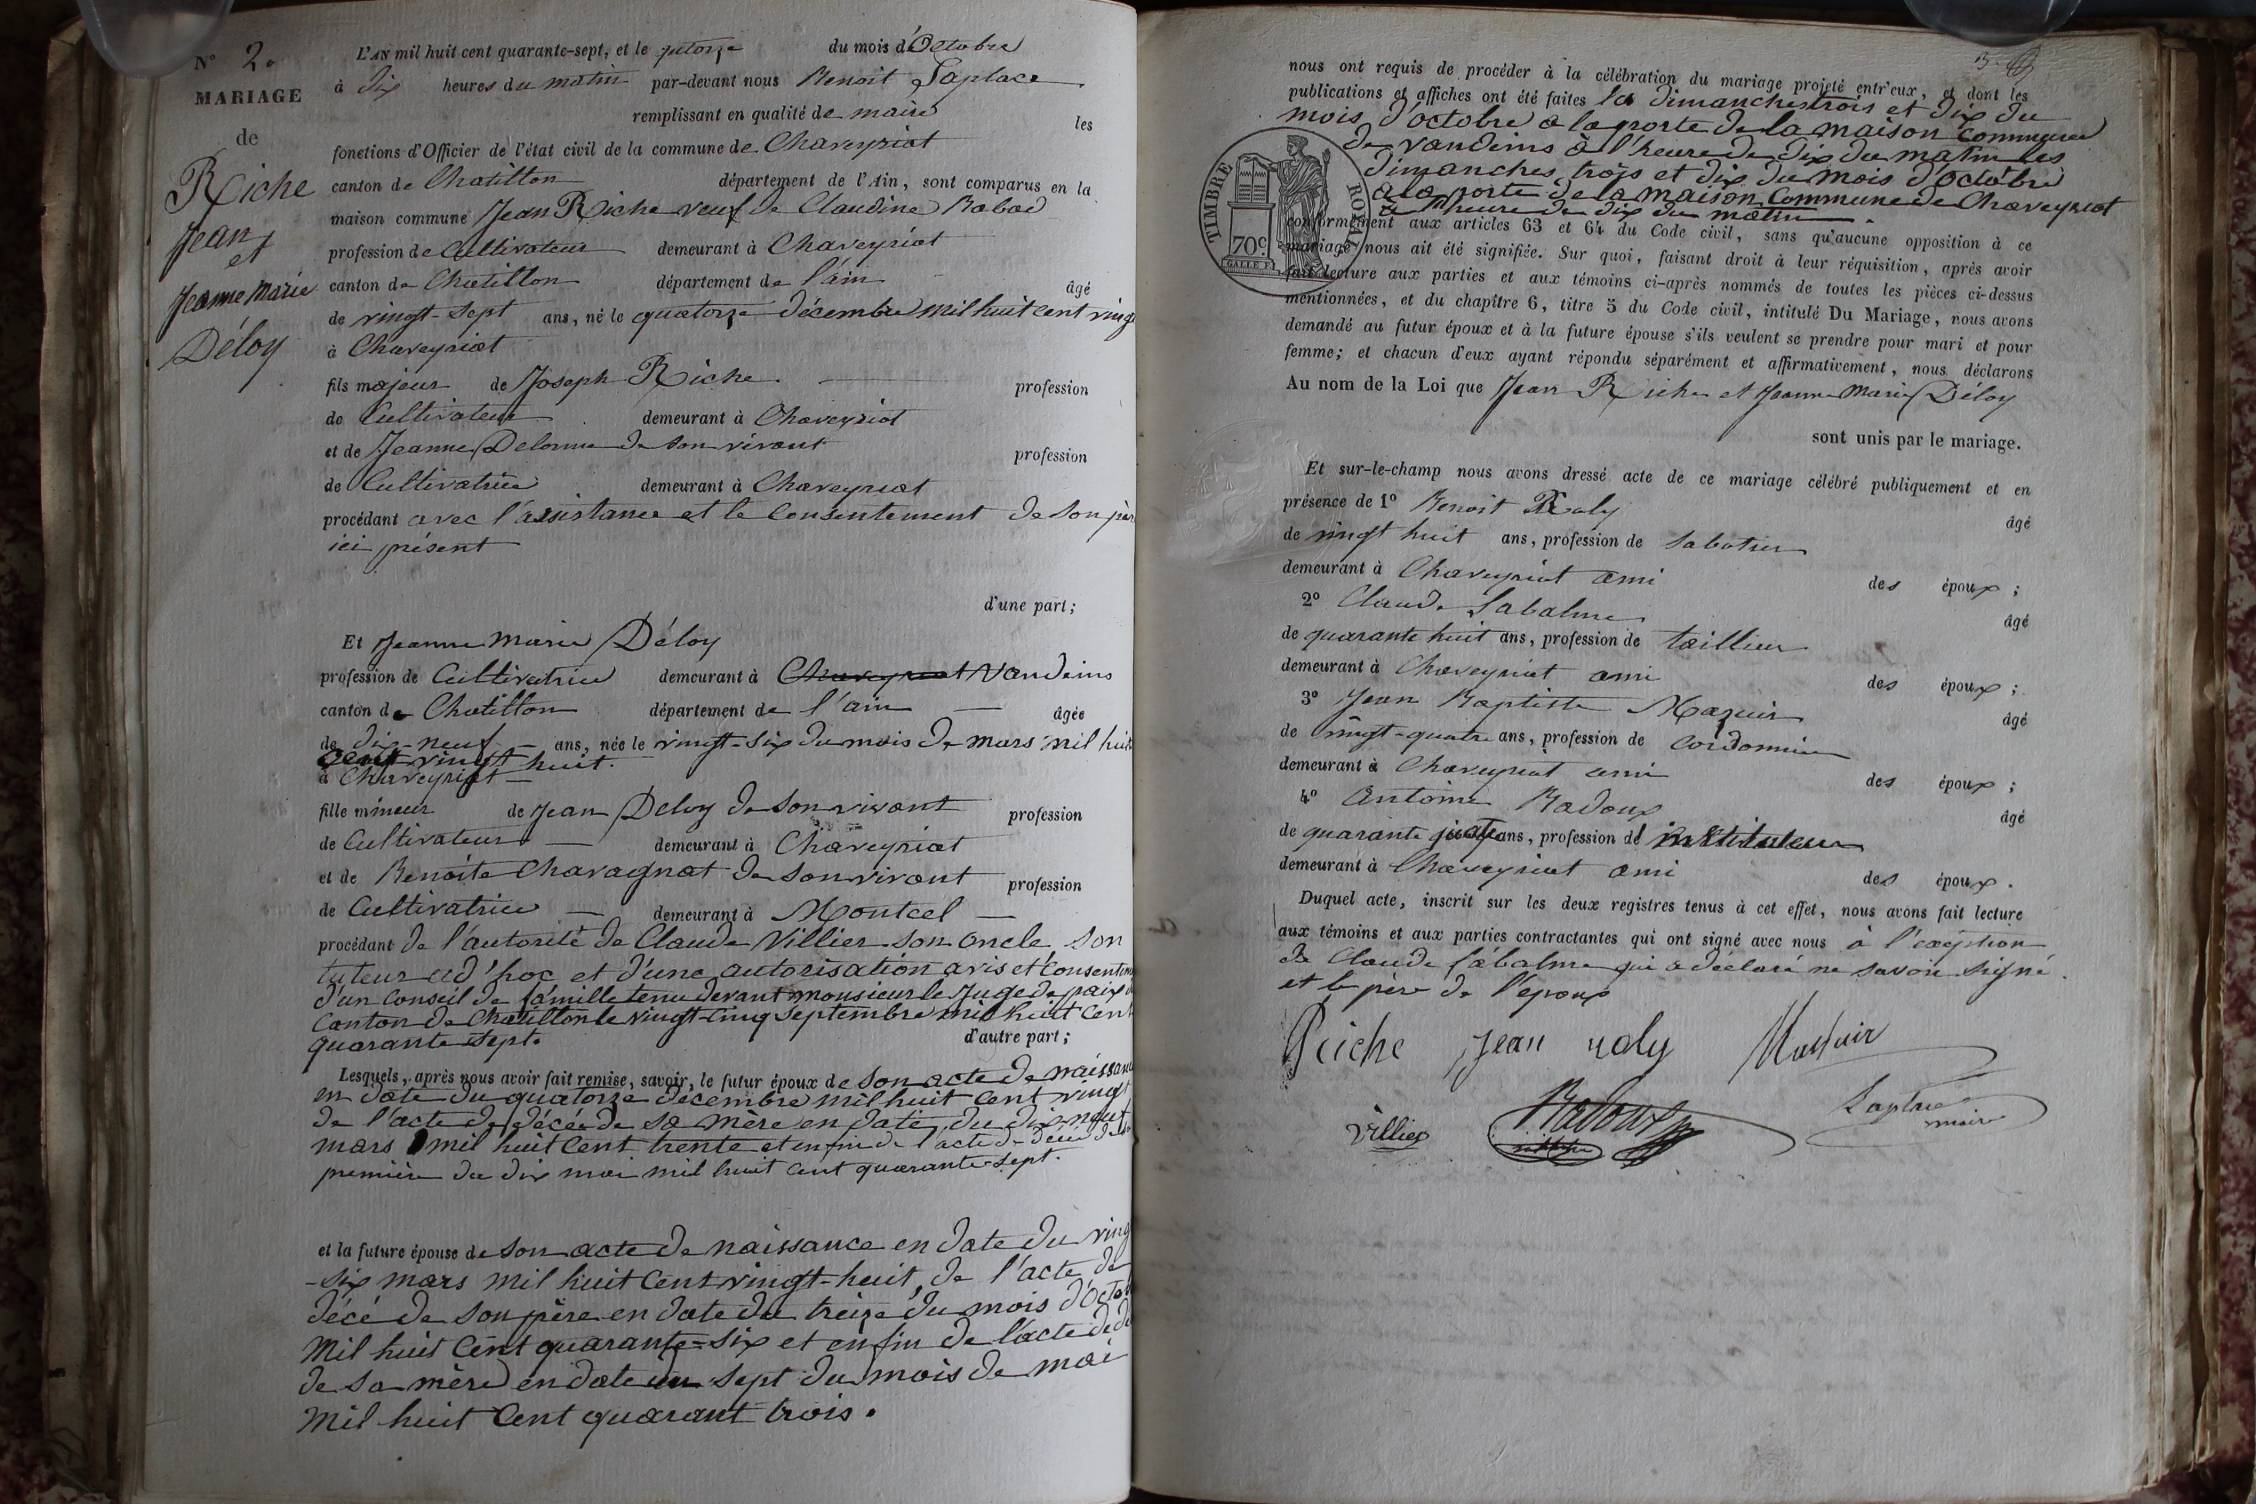 N° 2.
MARIAGE
de
Riche
Jean
et
Jeanne Marie
Déloy
L'AN mil huit cent quarante-sept, et le quatorze du mois d'Octobre
à dix heures du matin par-devant nous Benoit Laplace
remplissant en qualité de maire les
fonctions d'Officier de l'état civil de la commune de Chaveyriat
canton de Chatillon département de l'Ain, sont comparus en la
maison commune Jean Riche veuf de Claudine Rabad
profession de Cultivateur demeurant à Chaveyriat
canton de Chatillon département de l'ain âgé
de vingt-sept ans, né le quatorze décembre mil huit cent vingt
à Chaveyriat
fils majeur de Joseph Riche profession
de Cultivateur demeurant à Chaveyriat
et de Jeanne Delorme de son vivant profession
de Cultivatrice demeurant à Chaveyriat
procédant avec l'assistance et le consentement de son père
ici présent
d'une part;
Et Jeanne Marie Déloy
profession de Cultivatrice demeurant à Chaveyriat Vandeins
canton de Chatillon département de l'ain âgée
de dix-neuf ans, née le vingt-six du mois de mars mil huit
cent vingt huit.
à Chaveyriat
fille mineur de Jean Deloy de son vivant profession
de Cultivateur demeurant à Chaveyriat
et de Benoite Chavagnat de son vivant profession
de Cultivatrice demeurant à Montcel
procédant de l'autorité de Claude Villier son oncle son
tuteur ad'hoc et d'une autorisation avis et consentem
d'un conseil de famille tenu devant monsieur le Juge de paix
canton de Chatillon le vingt-cinq septembre mil huit cent
quarante sept.
d'autre part;
Lesquels, après nous avoir fait remise, savoir, le futur époux de son acte de naissance
en date du quatorze décembre mil huit cent vingt
de l'acte de décés de sa mère en date du dix-neuf
mars mil huit cent trente et enfin de l'acte de
première du dix mai mil huit cent quarante-sept.
et la future épouse de son acte de naissance en date du ving
-six mars mil huit cent vingt-huit, de l'acte de
décé de son père en date du treize du mois d'Octob
mil huit cent quarante-six et enfin de l'acte de dé
de sa mère en date du sept du mois de mai
mil huit cent quarant trois.
nous ont requis de procéder à la célébration du mariage projeté entr'eux, et dont les
publications et affiches ont été faites les dimanches trois et dix du
mois d'octobre à la porte de la maison commune
de vandeins à l'heure de dix du matin les
dimanches trois et dix du mois d'octobre
à la porte de la maison Commune de Chaveyriat
à l'heure de dix du matin.
TIMBRE ROYAL
70c.
GALLE F.
conformément aux articles 63 et 64 du Code civil, sans qu'aucune opposition à ce
mariage nous ait été signifiée. Sur quoi, faisant droit à leur réquisition, après avoir
fait lecture aux parties et aux témoins ci-après nommés de toutes les pièces ci-dessus
mentionnées, et du chapître 6, titre 5 du Code civil, intitulé Du Mariage, nous avons
demandé au futur époux et à la future épouse s'ils veulent se prendre pour mari et pour
femme; et chacun d'eux ayant répondu séparément et affirmativement, nous déclarons
Au nom de la Loi que Jean Riche et Jeanne Marie Déloy
sont unis par le mariage.
Et sur-le-champ nous avons dressé acte de ce mariage célébré publiquement et en
présence de 1° Benoit Raly âgé
de vingt huit ans, profession de sabotier
demeurant à Chaveyriat ami des époux;
2° Claude Labalme âgé
de quarante huit ans, profession de taillieur
demeurant à Chaveyriat ami des époux;
3° Jean Baptiste Mazuir âgé
de vingt-quatre ans, profession de cordonnier
demeurant à Chaveyriat ami des époux;
4° Antoine Radoux âgé
de quarante quatre ans, profession de instituteur
demeurant à Chaveyriat ami des époux.
Duquel acte, inscrit sur les deux registres tenus à cet effet, nous avons fait lecture
aux témoins et aux parties contractantes qui ont signé avec nous à l'exception
de Claude Labalme qui a déclaré ne savoir signé
et le père de l'époux
Riche Jean raly Mazuir
Villier Radoux Laplace
maire